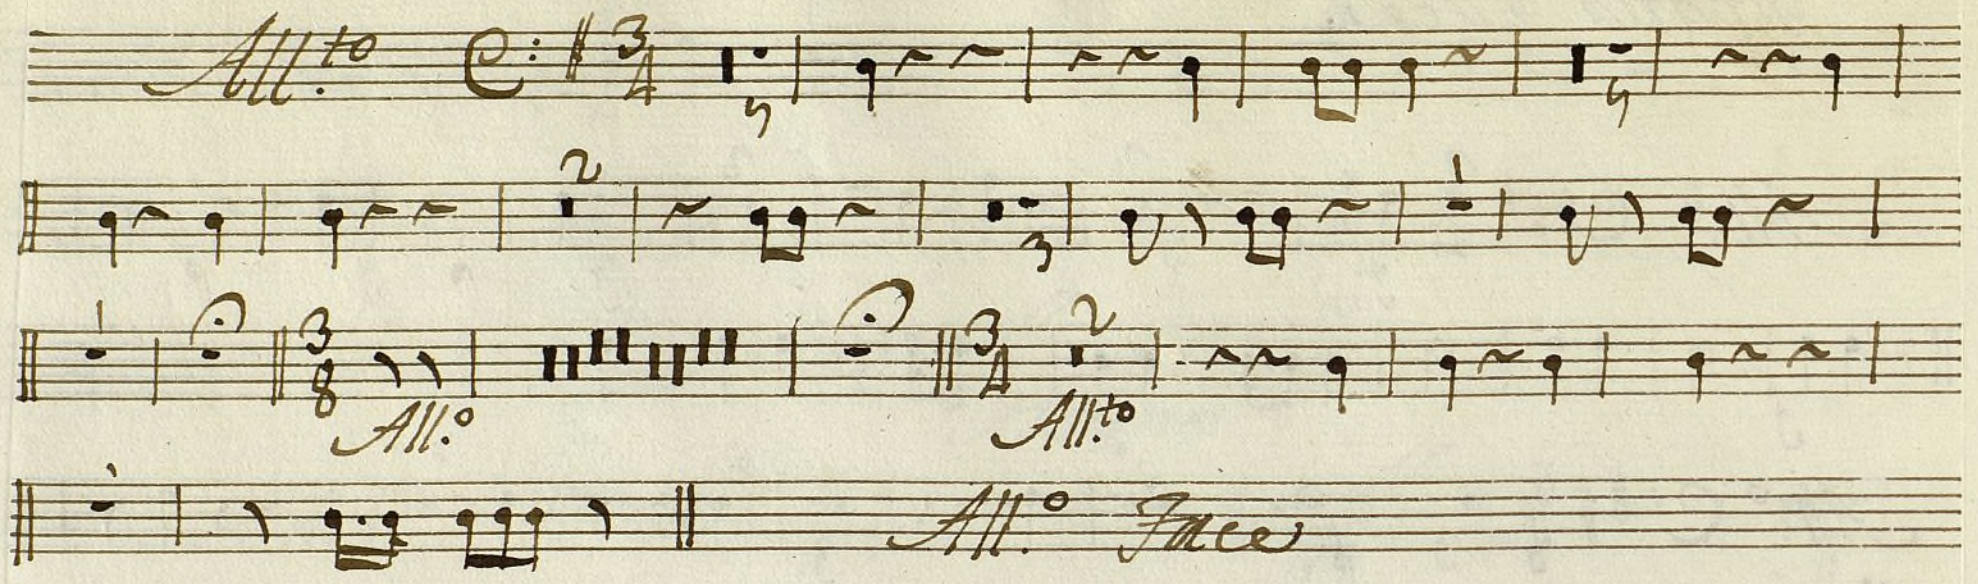 All.to 3 4 5 5
2 3 1
1 3 8 All.o 3 4 2 All.to
1 All.o Tace